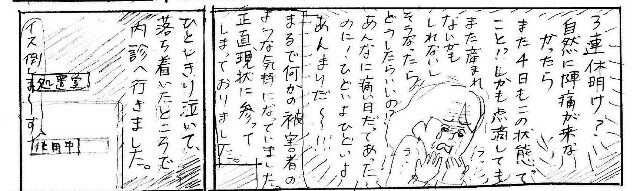 3連休明け?
自然に陣痛が来な
かったら
また4日もこの状態で
こと!?しかも点滴しても
また産まれ
ないかも
しれないし
そうなたら
どうしたらいいの!?
あんなに痛い日だてあった
のに!ひどいよひどいよ
あんまりだ〜!!!
まるで何かの被害者の
ような気持になていました。
正直現状に参って
しまておりました…。
ひとしきり泣いて、
落ち着いたところで
内診へ行きました。
処置室
使用中
イス倒しま〜す